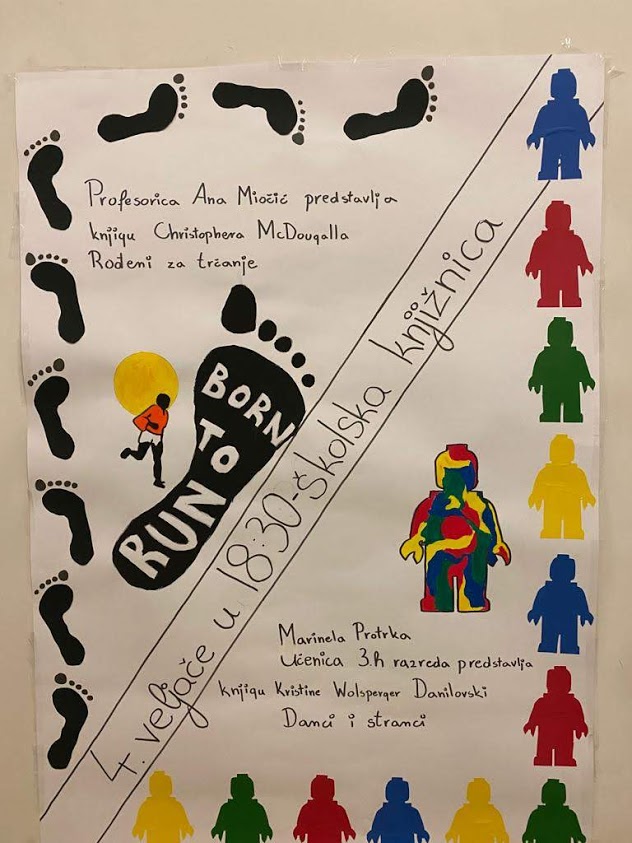 Profesorica Ana Miočić predstavlja
knjigu Christophera McDougalla
Rođeni za trčanje
BORN
TO
RUN
4. veljače u 18:30-školska knjižnica
Marinela Protrka
Učenica 3.h razreda predstavlja
knjigu Kristine Wolsperger Danilovski
Danci i stranci